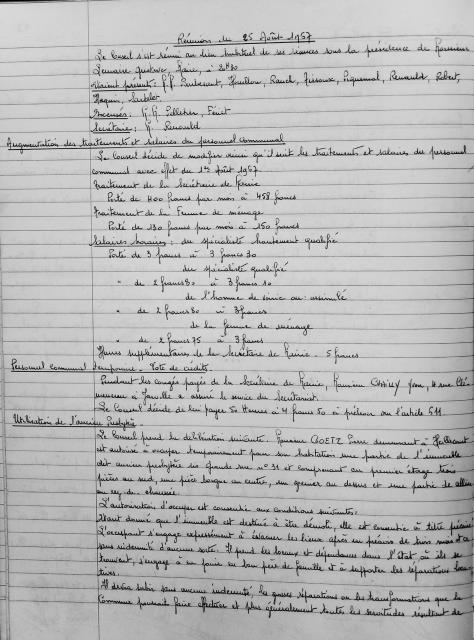 Réunion du 25 Août 1967
Le Conseil s'est réuni au lieu habituel de ses séances sous la présidence de Monsieur
Lemaire Gustave, Maire, à 20h30
étaient présents :
Excusés : M.M. Pelletier,
Secrétaire : M. Renauld
Augmentation des traitements et salaires du personnel communal
Le Conseil décide de modifier ainsi qu'il suit les traitements et salaires du personnel
communal avec effet du 1er Août 1967
Traitement de la Secrétaire de Mairie
Porté de 400 francs par mois à 458 francs
Traitement de la Femme de ménage
Porté de 130 francs par mois à 150 francs
Salaires horaires : du spécialiste hautement qualifié
Porté de 3 francs à 3 francs 30
du spécialiste qualifié
" de 2 francs 80 à 3 francs 10
de l'homme de service ou assimilé
" de 2 francs 80 à 3 francs
de la femme de ménage
" de 2 francs 75 à 3 francs
Heures supplémentaires de la Secrétaire de Mairie - 5 francs
Personnel communal temporaire - Vote de crédits.
Pendant les congés payés de la Secrétaire de Mairie, Monsieur
a assuré le service du Secrétariat.
Le Conseil décide de lui payer 50 heures à 4 francs 50 à prélever sur l'article 611.
Utilisation de l'ancien Presbytère.
Le Conseil prend la délibération suivante : Monsieur GOETZ Pierre demeurant à
est autorisé à occuper temporairement pour son habitation une partie de l'immeuble
dit ancien presbytère sis grande rue n° 31 et comprenant au premier étage trois
pièces au sud, une pièce longue au centre, un grenier au dessus et une partie de cellier
au rez de chaussée.
L'autorisation d'occuper est consentie aux conditions suivantes :
Etant donné que l'immeuble est destiné à être démoli, elle est consentie à titre précaire
L'occupant s'engage expressément à évacuer les lieux après un préavis de trois mois et ce
sans indemnité d'aucune sorte. Il prend les locaux et dépendances dans l'état où ils se
trouvent, s'engage à en jouir en bon père de famille et à supporter les réparations loca-
tives.
Il devra subir sans aucune indemnité, les grosses réparations ou les transformations que la
Commune pourrait faire effectuer et plus généralement toutes les servitudes résultant de